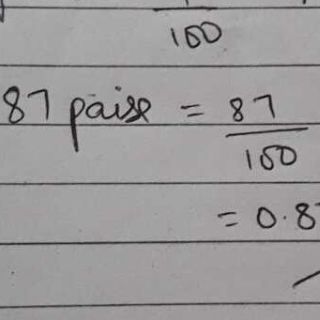 100
87 paise = 87
100
= 0.8